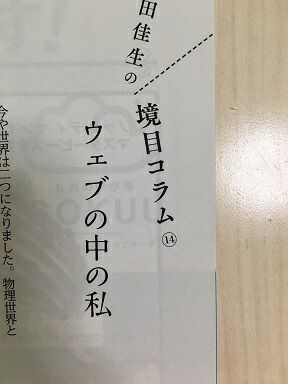 田佳生の
境目コラム⑭
ウェブの中の私
今や世界は二つになりました。物理世界と